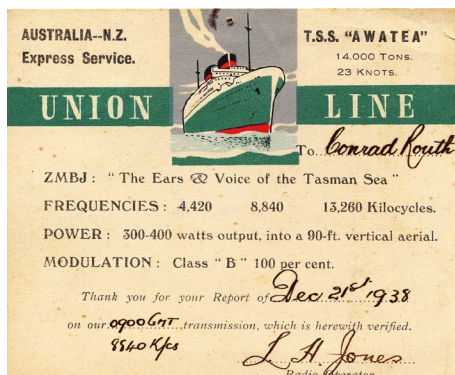 AUSTRALIA--N.Z.
Express Service.
T.S.S. "AWATEA"
14,000 TONS.
23 KNOTS.
UNION LINE
To Conrad Routh
ZMBJ : " The Ears & Voice of the Tasman Sea "
FREQUENCIES : 4,420 8,840 13,260 Kilocycles.
POWER : 300-400 watts output, into a 90-ft. vertical aerial.
MODULATION : Class " B " 100 per cent.
Thank you for your Report of Dec 21st 1938
on our 0900 GMT transmission, which is herewith verified.
8840 K/cs
L H Jones
Radio Operator